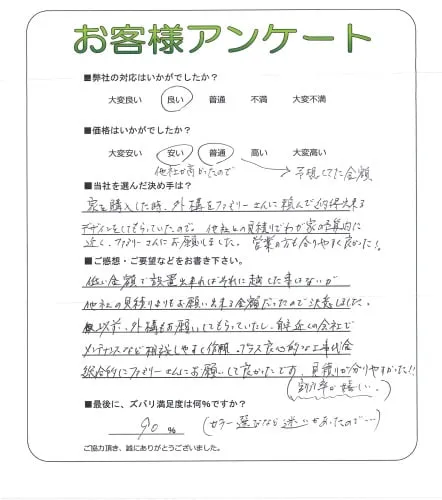 お客様アンケート
■弊社の対応はいかがでしたか？
大変良い 良い 普通 不満 大変不満
■価格はいかがでしたか？
大変安い 安い 普通 高い 大変高い
他社が高かったので 予想してた金額
■当社を選んだ決め手は？
家を購入した時、外構をファミリーさんに頼んで納得出来る
デザインをしてもらっていたので。他社との見積りでわが家の予算内に
近く、ファミリーさんにお願いしました。営業の方も分りやすく良かった!!
■ご感想・ご要望などをお書き下さい。
低い金額で設置出来ればそれに越した事はないが
他社の見積りよりもお願い出来る金額だったので決意しました。
以前、外構もお願いしてもらっていたし、近くの会社で
メンテナンスなど相談しやすく信頼。プラス良心的な工事代金
総合的にファミリーさんにお願いして良かったです。見積りが分りやすかった!!
割引率が嬉しい。
■最後に、ズバリ満足度は何%ですか？
90 % (カラー選びなど迷いがあったので…)
ご協力頂き、誠にありがとうございました。